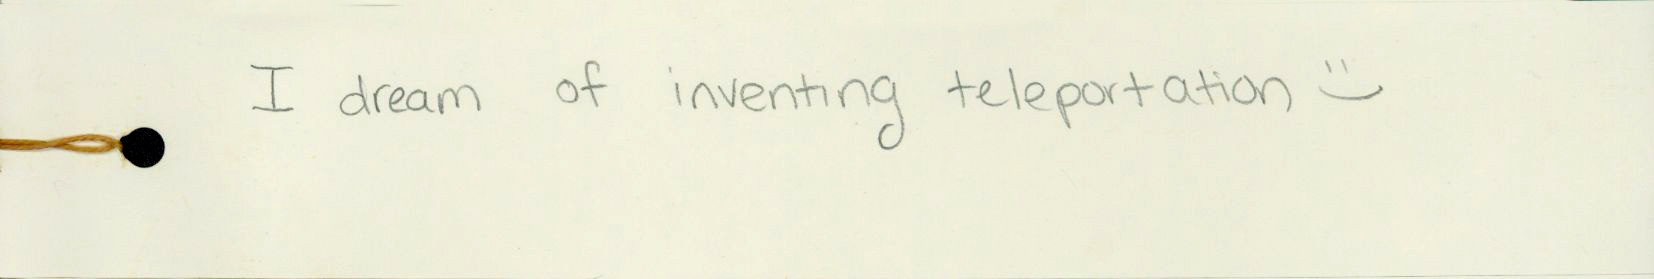 I dream of inventing teleportation :)